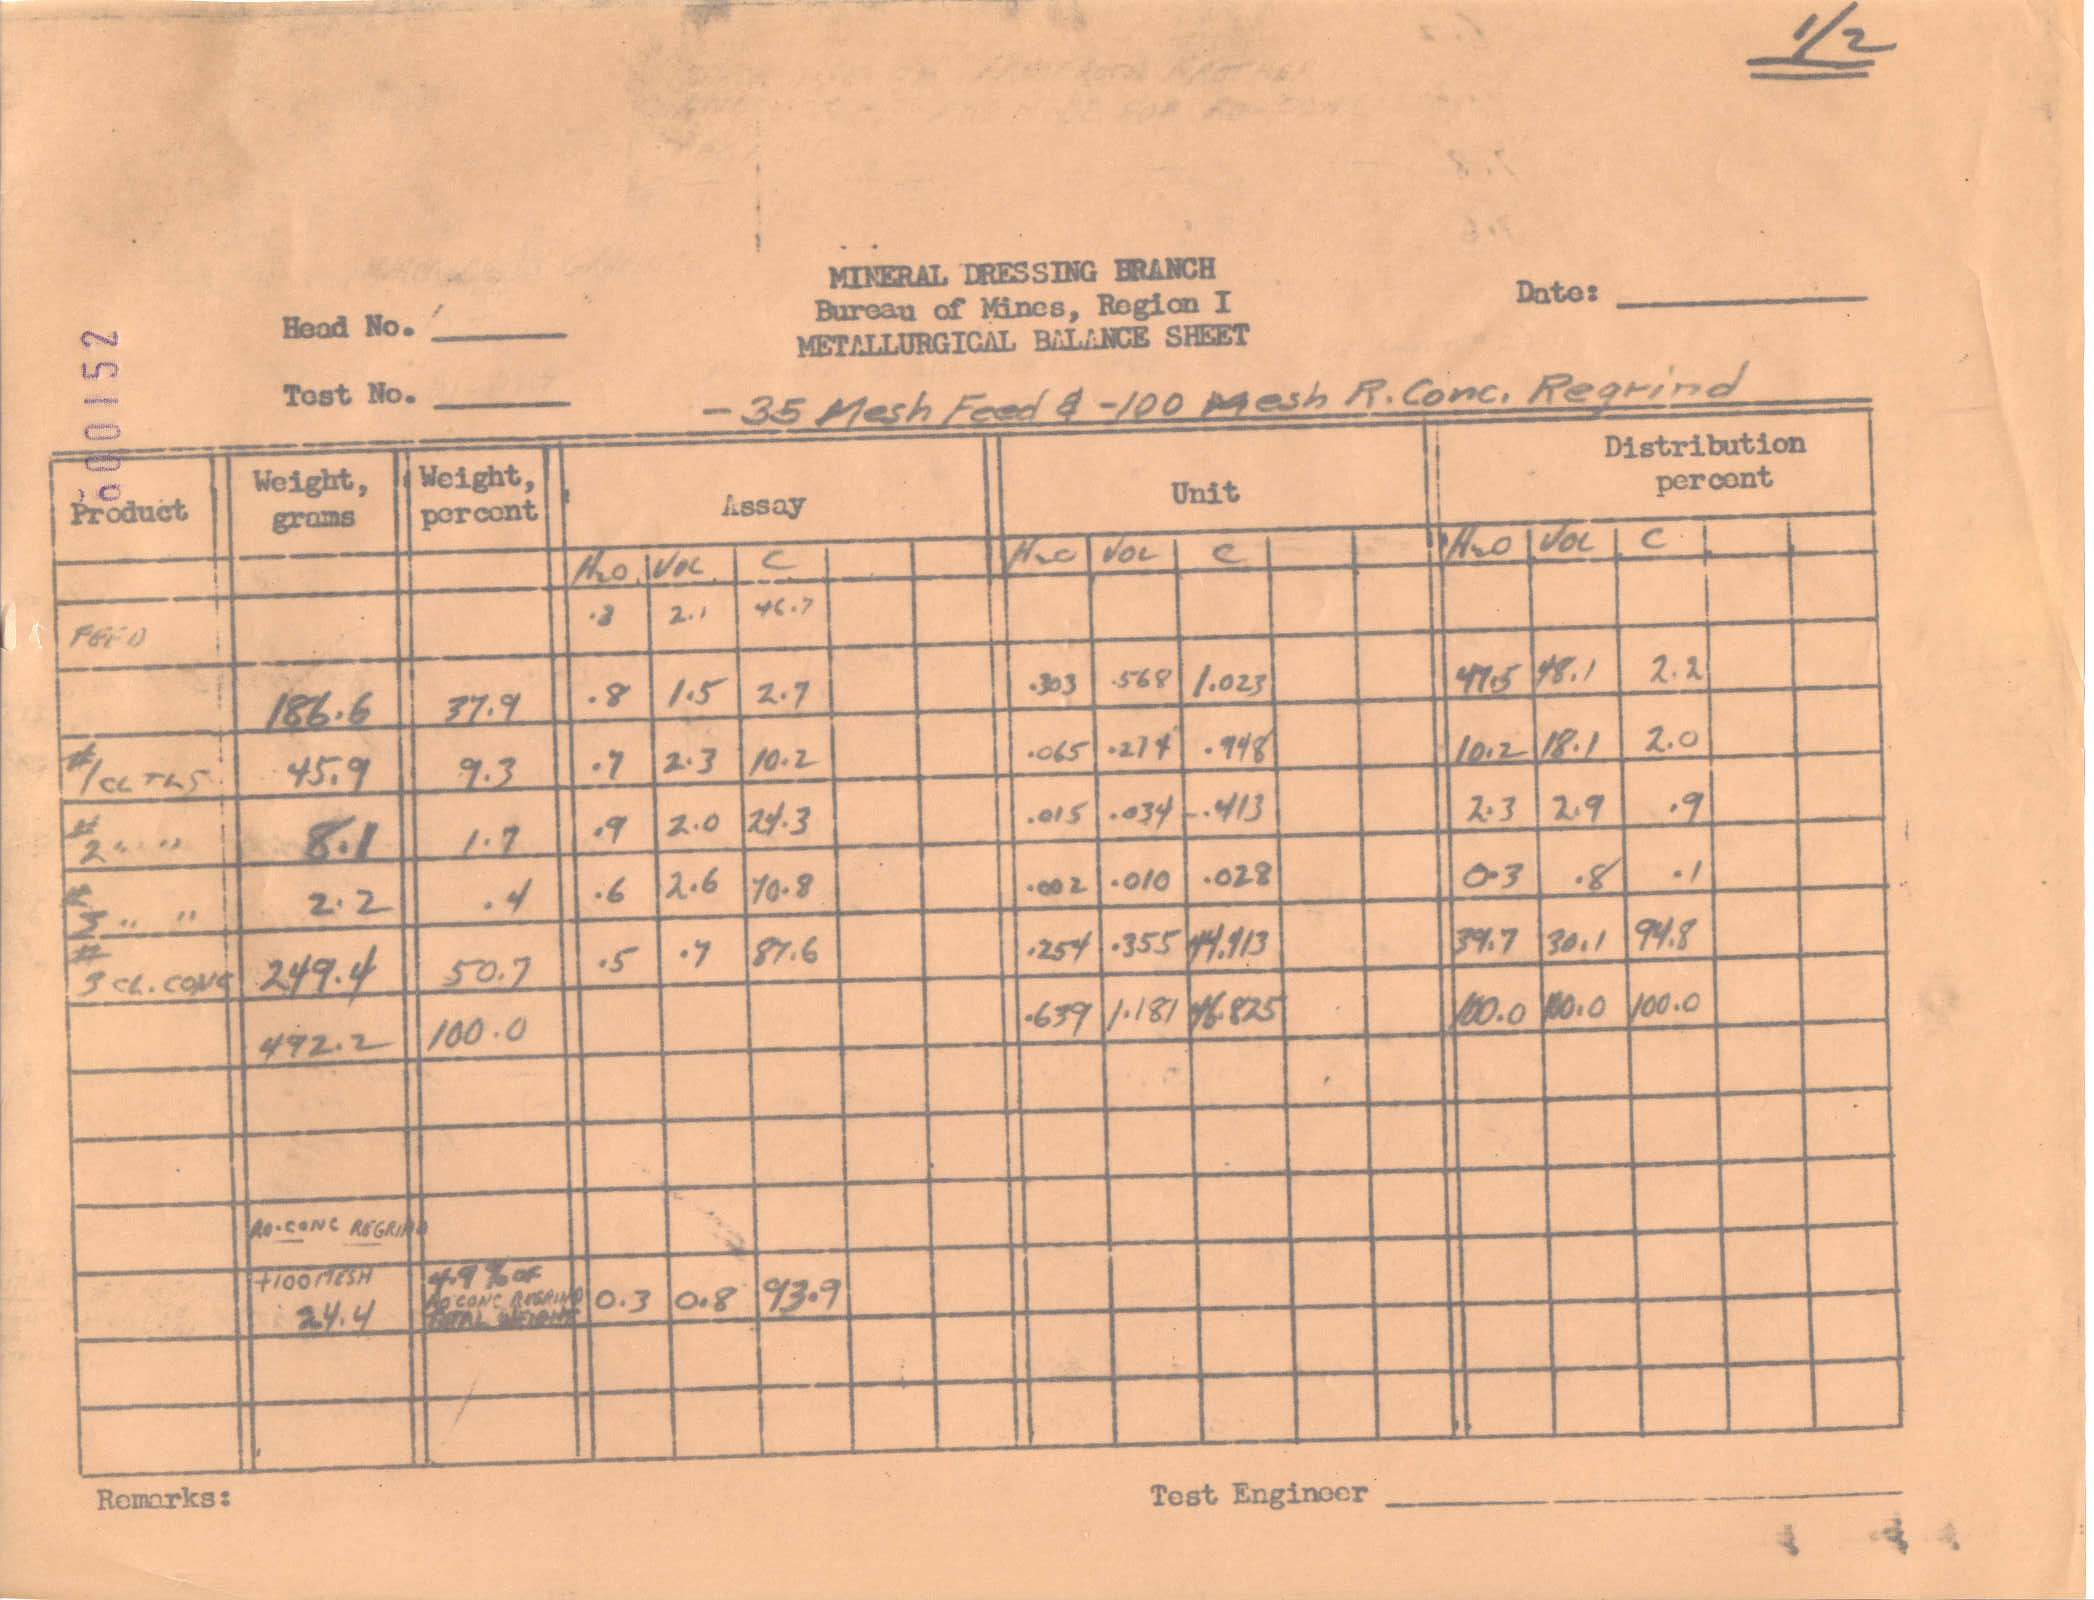 1/2
MINERAL DRESSING BRANCH
Bureau of Mines, Region I
METALLURGICAL BALANCE SHEET
Date:
Head No.
Test No.
600152
-35 Mesh Feed & -100 Mesh R. Conc. Regrind
Product Weight, grams Weight, percent Assay Unit Distribution percent
H2O VOL C H2O VOL C H2O VOL C
FEED .8 2.1 46.7
186.6 37.9 .8 1.5 2.7 .303 .568 1.023 47.5 48.1 2.2
#1 CL TLS 45.9 9.3 .7 2.3 10.2 .065 .214 .948 10.2 18.1 2.0
#2 " " 8.1 1.7 .9 2.0 24.3 .015 .034 .413 2.3 2.9 .9
#3 " " 2.2 .4 .6 2.6 70.8 .002 .010 .028 0.3 .8 .1
#3 CL. CONC 249.4 50.7 .5 .7 87.6 .254 .355 44.413 39.7 30.1 94.8
492.2 100.0 .639 1.181 46.825 100.0 100.0 100.0
RO-CONC REGRIND
+100 MESH 24.4 4.9 % OF RO CONC REGRIND TOTAL WEIGHT 0.3 0.8 93.9
Remarks:
Test Engineer